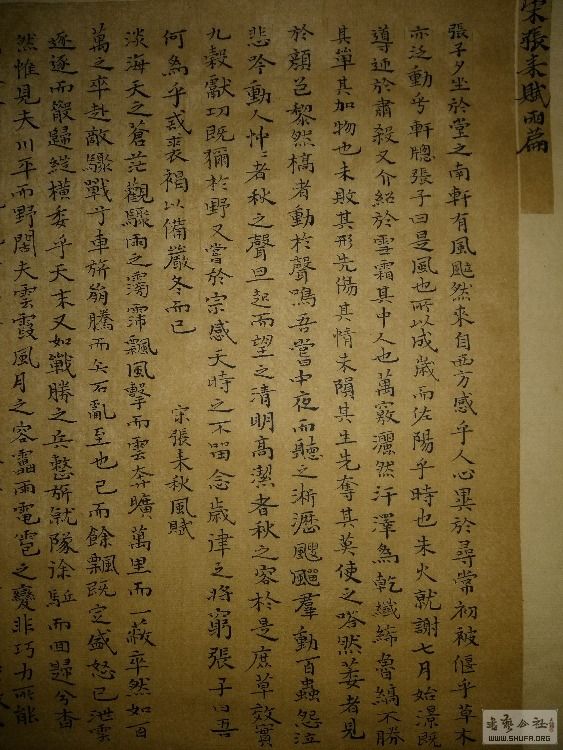 宋張耒賦兩篇
張子夕坐於堂之南軒有風颭然來自西方感乎人心異於尋常初被偃乎草木
亦泛動兮軒牕張子曰是風也所以成歲而佐陽乎時也朱火就謝七月始濦既
導迎於肅殺又介紹於雪霜其中人也萬竅灑然汗澤為乾纖絺魯縞不勝
其單其加物也未敗其形先傷其情未隕其生先奪其英使之嗒然萎者見
於顏色黎然槁者動於聲鳴吾嘗中夜而聽之淅瀝颼飀羣動百蟲怨泣
悲吟動人忡忡者秋之聲旦起而望之清明高潔者秋之容於是庶草效實
九穀獻功既獮於野又嘗於宗感天時之不留念歲律之將窮張子曰吾
何為乎或裘褐以備嚴冬而已
宋張耒秋風賦
淡海天之蒼茫觀驟雨之霶霈飄風擊而雲奔曠萬里而一蔽卒然如百
萬之卒赴敵驟戰兮車旂崩騰而矢石亂至也已而餘飄既定盛怒已泄雲
逐逐而散歸縱橫委乎天末又如戰勝之兵整旂就隊徐驅而回歸兮杳
然惟見夫川平而野闊夫雲霞風月之容靁雨電雹之變非巧力所能
書藝公社
WWW.SHUFA.ORG